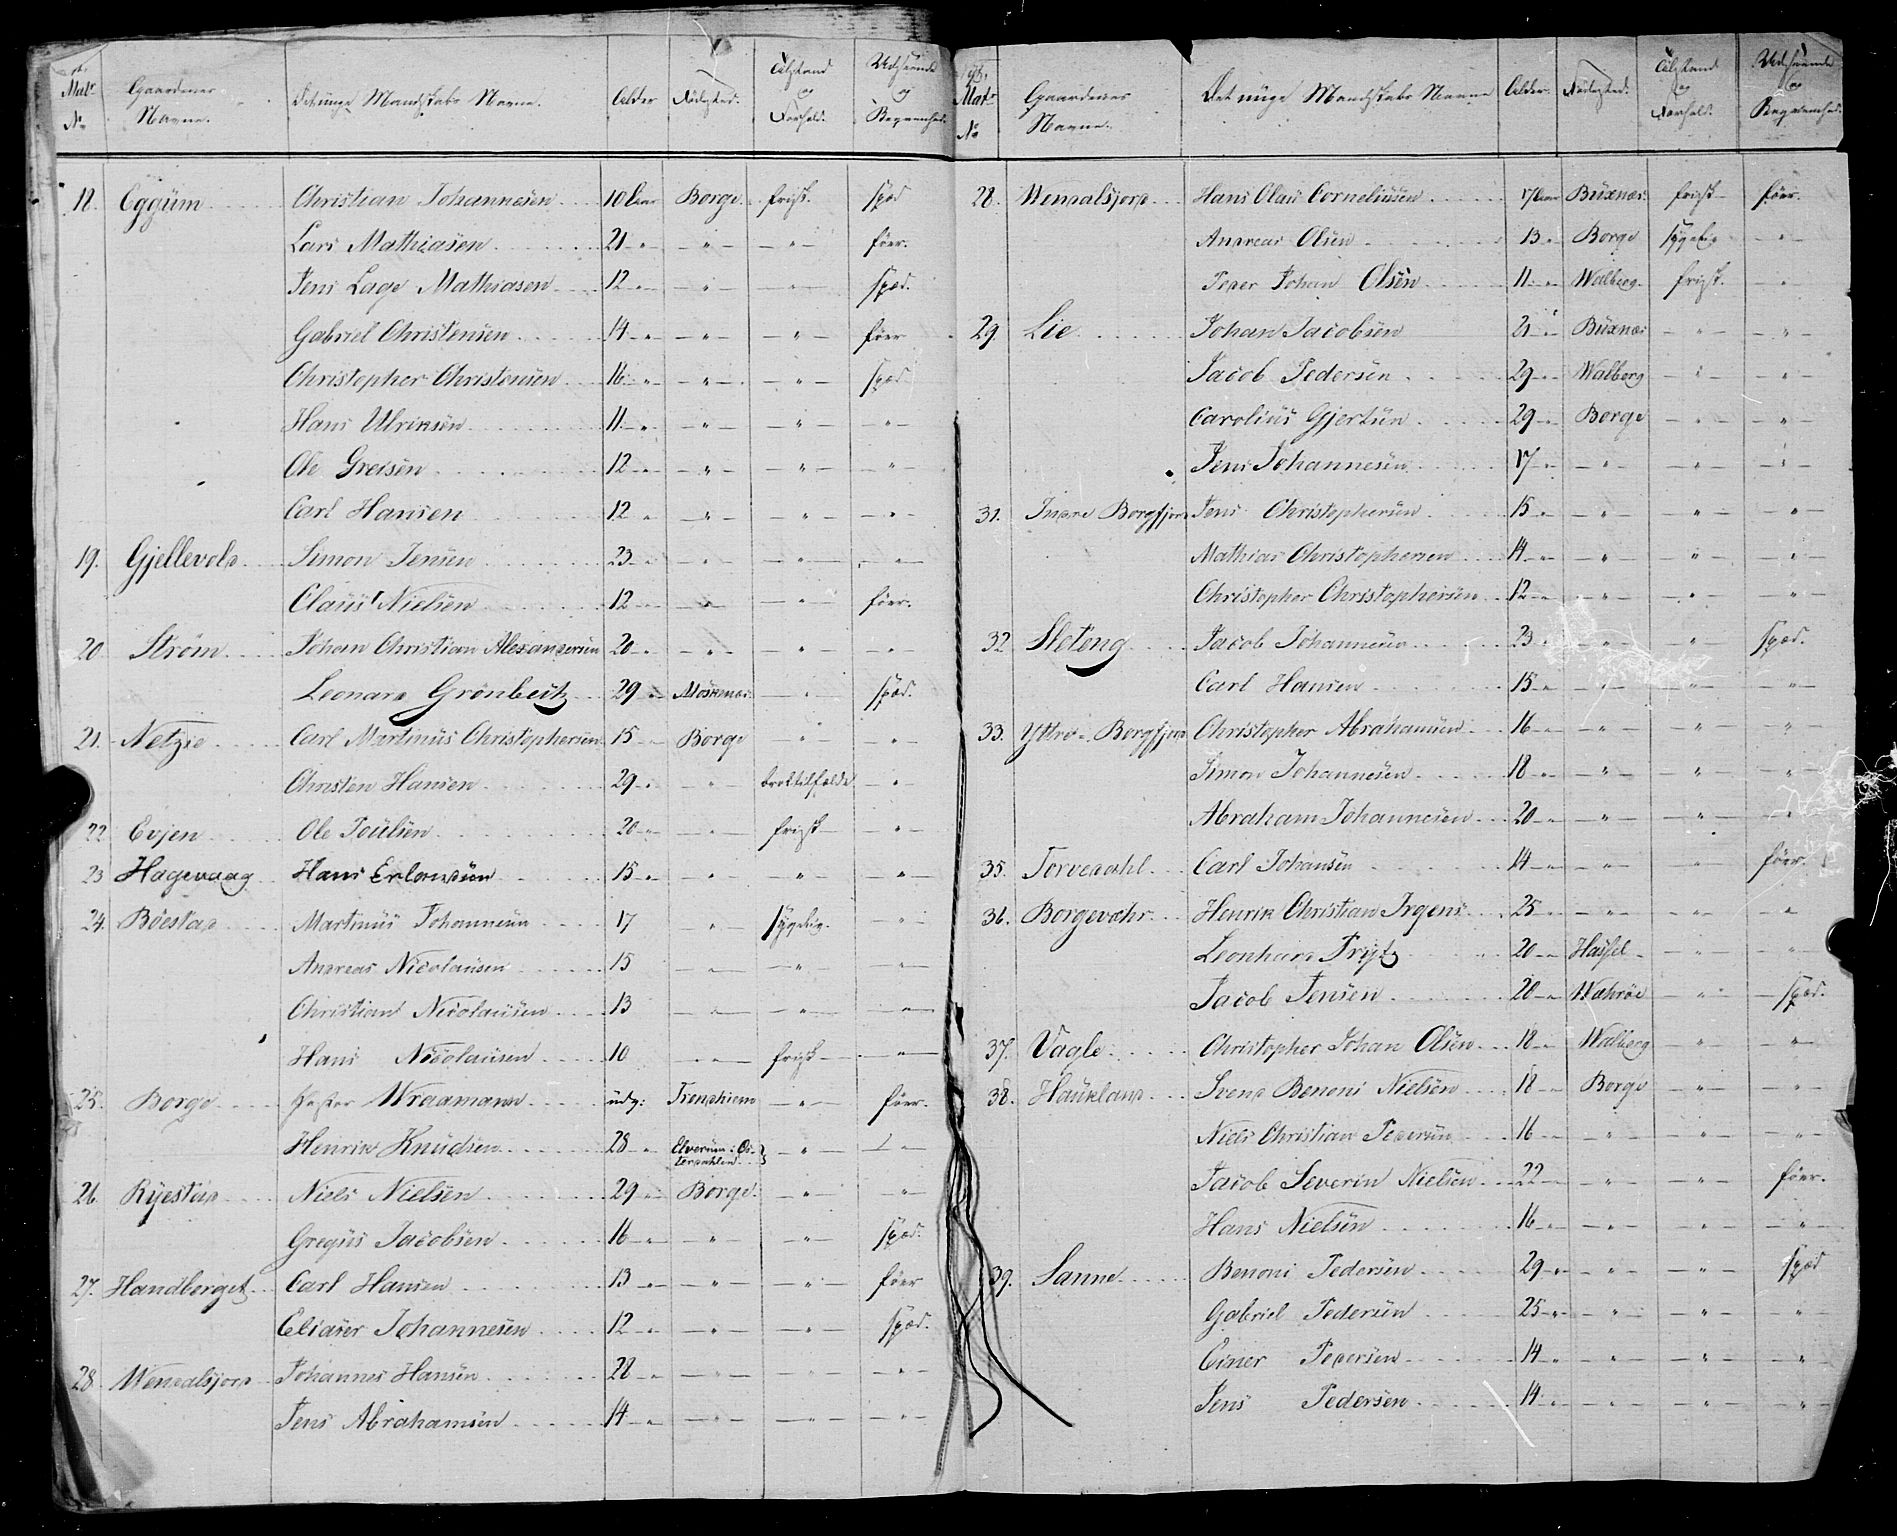 Matr No | Gaardenes Navne. | Det unge Mandskabs Navne. | Alder | Fødested. | Tilstand og Forhold. | Udseende og Beqvemhed.
18. Eggum Christian Johannesen 10 Aar Borge frisk spæd
Lars Mathiasen 21 " " " föer.
Jens Lage Mathiasen 12 " " " spæd.
Gabriel Christensen 14 " " " föer
Christopher Christensen 16 " " " spæd
Hans Ulriksen 11 " " " "
Ole Greisen 12 " " " "
Carl Hansen 12 " " " "
19. Gjellevold Simon Jensen 23 " " " "
Claus Nielsen 12 " " " föer.
20 Strøm Johan Christian Alexandersen 20 " " " "
Leonard Grönbeck 29 " Moskenæs " spæd.
21. Netzie Carl Martinus Christophersen 15 " Borge " "
Christen Hansen 29 " " broktilfælde "
22 Evjen Ole Poulsen 20 " " frisk "
23 Hagevaag Hans Erlandsen 15 " " " "
24. Böestad Martinus Johannesen 17 " sygelig. "
Andreas Nicolaisen 15 " " "
Christian Nicolaisen 13 " " "
Hans Nicolaisen 10 " frisk "
25. Borge Wraamann udg: Trondhiem " föer.
Henrik Knudsen 28 " Elverum i Österdahlen " "
26 Ryestad Niels Nielsen 29 " Borge " "
Gregus Jacobsen 16 " " " spæd.
27. Handberget Carl Hansen 13 " " " föer
Eliaser Johannesen 12 " " " spæd.
28 Wendalsjord Johannes Hansen 28 " " " "
Jens Abrahamsen 14 " " " "
Matr No | Gaardenes Navne. | Det unge Mandskabs Navne | Alder. | Fødested. | Tilstand og Forhold. | Udseende og Beqvemhed.
28. Wendalsjord Hans Olai Corneliusen 17 Aar Buxnæs frisk föer.
Andreas Olsen 13 " Borge sygelig "
Peder Johan Olsen 11 " Walberg frisk. "
29. Lie Johan Jacobsen 21 " Buxnæs " "
Jacob Pedersen 29 " Walberg " "
Carolius Gjertsen 29 " Borge " "
Jens Johannesen 17 " " " "
31. Indre Borgfjord Jens Christophersen 15 " " " "
Mathias Christophersen 14 " " " "
Christopher Christophersen 12 " " " "
32 Sleteng Jacob Johannesen 23 " " " spæd.
Carl Hansen 15 " " " "
33. Yttre Borgfjord Christopher Abrahamsen 16 " " " "
Simon Johannesen 18 " " " "
Abraham Johannesen 20 " " " "
35. Torvedahl Carl Johansen 14 " " " föer.
36. Borgevæhr Henrik Christian Irgens 25 " " " "
Leonhard Prytz 20 " Hassel " "
Jacob Jensen 20 " Wæhröe " spæd.
37. Vagle Christopher Johan Olsen 18 " Walberg " "
38. Haukland Svend Benoni Nielsen 18 " Borge " "
Niels Christian Pedersen 16 " " " "
Jacob Severin Nielsen 22 " " " föer.
Hans Nielsen 16 " " " "
39. Sanne Benoni Pedersen 29 " " " spæd
Gabriel Pedersen 25 " " " "
Einer Pedersen 14 " " " "
Jens Pedersen 14 " " " "